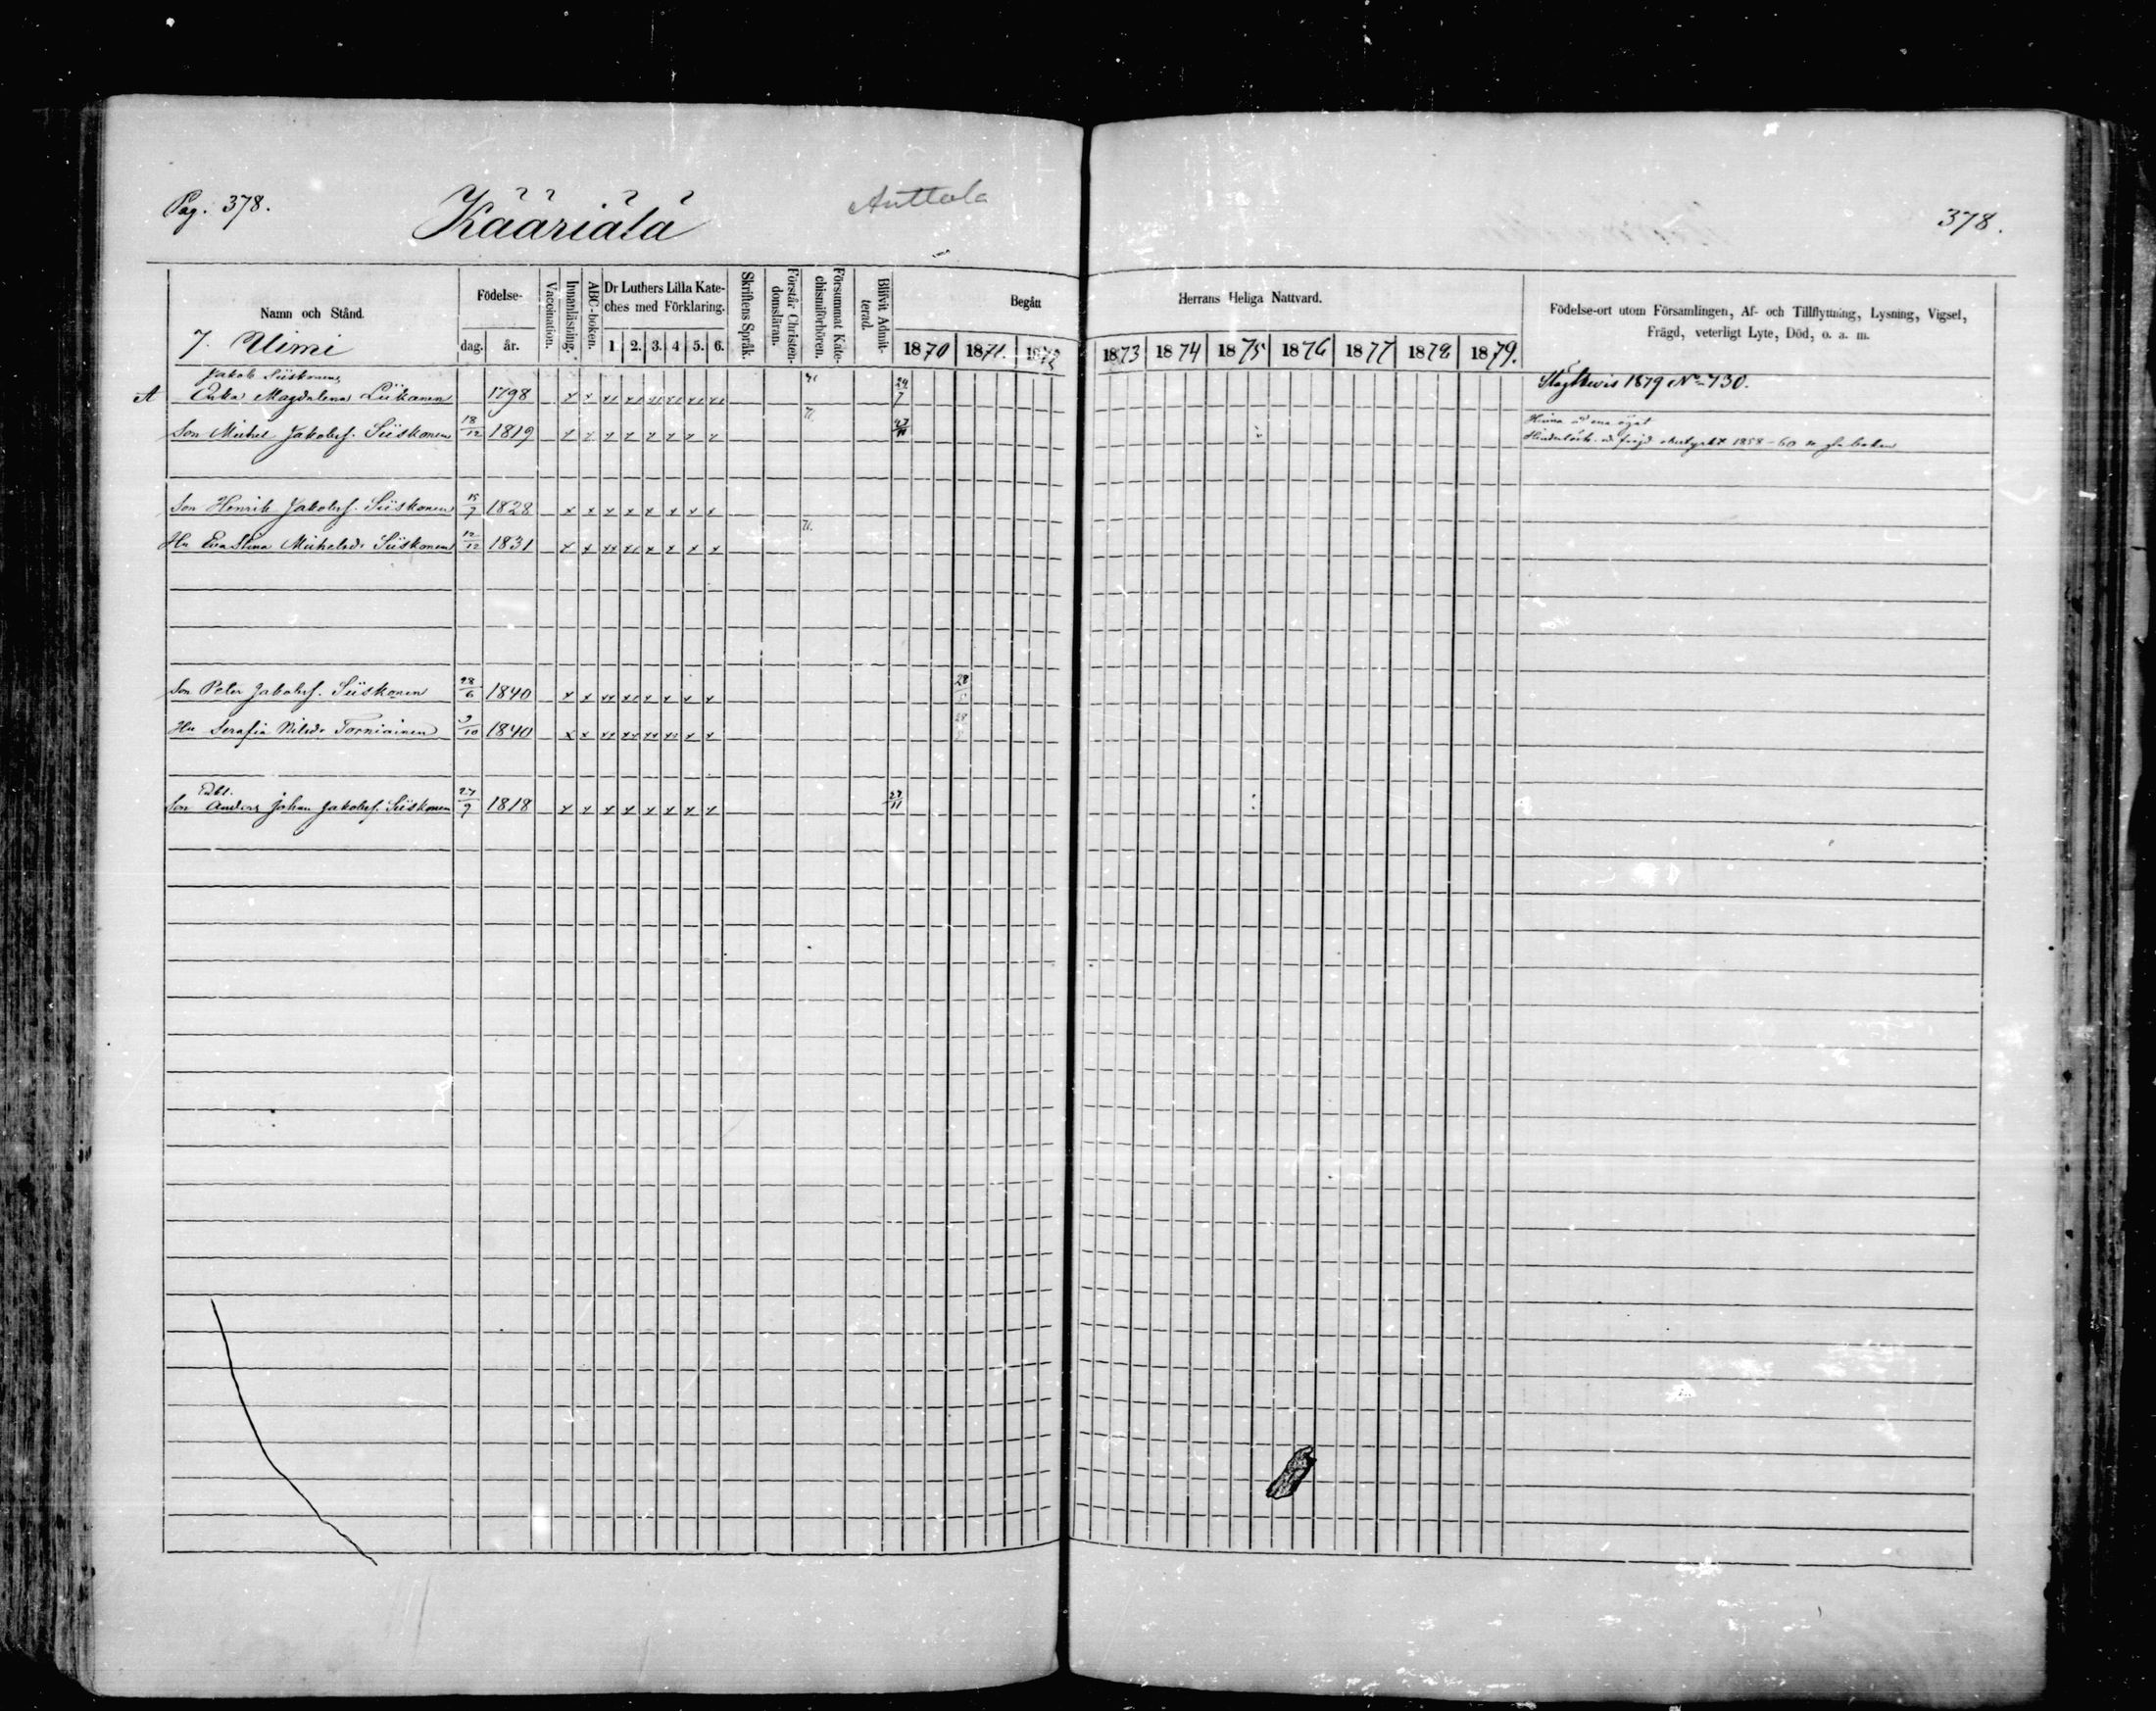 Pag. 378.
Kääriälä
Anttola
378.
Namn och Stånd.
Födelse-
dag.
år.
Vaccination.
Innanläsning.
ABC-boken.
Dr Luthers Lilla Kate-
ches med Förklaring.
1. 2. 3. 4 5. 6.
Skriftens Språk.
Förstår Christen-
domsläran.
Försummat Kate-
chismiförhören.
Blifvit Admit-
terad.
Begått Herrans Heliga Nattvard.
1870 1871. 1872 1873 1874 1875 1876 1877 1878 1879.
Födelse-ort utom Församlingen, Af- och Tillflyttning, Lysning, Vigsel,
Frägd, veterligt Lyte, Död, o. a. m.
7. Niemi
Jakob Siiskonens
A Enka Magdalena Liikanen 1798 24/7
1879 No 730.
Son Michel Jakobsf. Siiskonen 18/12 1819 27/11
Hinna å ena ögat
1858-60
Son Henrik Jakobsf. Siiskonen 15/7 1828
Hu Eva Stina Michelsdr Siiskonen 12/12 1831
Son Peter Jakobsf. Siiskonen 28/6 1840 28
Hu Serafia Nilsdr Torniainen 9/10 1840 28
Son Anders Johan Jakobsf. Siiskonen 27/9 1818 27/11